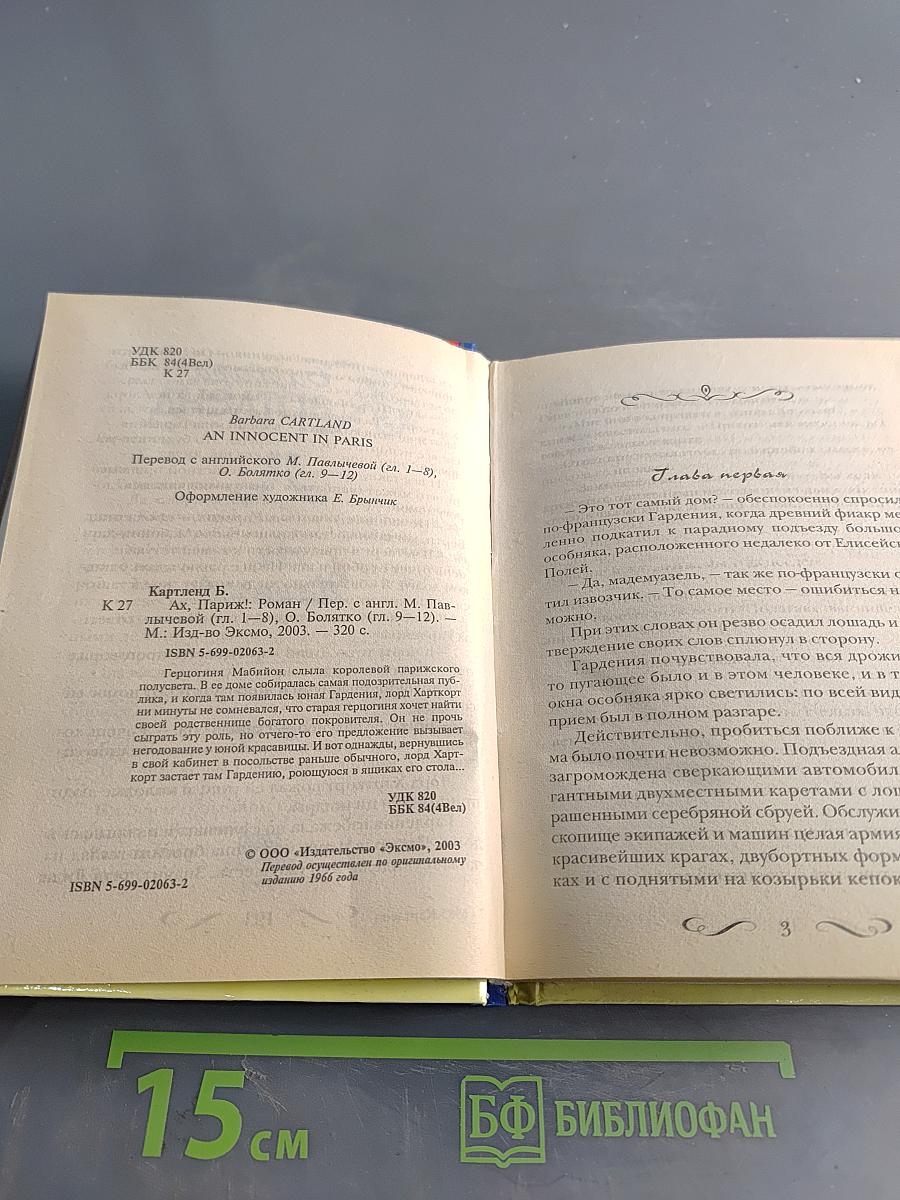 УДК 820
ББК 84(4Вел)
К 27
Barbara CARTLAND
AN INNOCENT IN PARIS
Перевод с английского М. Павлычевой (гл. 1—8),
О. Болятко (гл. 9—12)
Оформление художника Е. Брынчик
Картленд Б.
К 27 Ах, Париж!: Роман / Пер. с англ. М. Пав-
лычевой (гл. 1—8), О. Болятко (гл. 9—12). —
М.: Изд-во Эксмо, 2003. — 320 с.
ISBN 5-699-02063-2
Герцогиня Мабийон слыла королевой парижского
полусвета. В ее доме собиралась самая подозрительная пуб-
лика, и когда там появилась юная Гардения, лорд Харткорт
ни минуты не сомневался, что старая герцогиня хочет найти
своей родственнице богатого покровителя. Он не прочь
сыграть эту роль, но отчего-то его предложение вызывает
негодование у юной красавицы. И вот однажды, вернувшись
в свой кабинет в посольстве раньше обычного, лорд Харт-
корт застает там Гардению, роющуюся в ящиках его стола...
УДК 820
ББК 84(4Вел)
© ООО «Издательство «Эксмо», 2003
Перевод осуществлен по оригинальному
изданию 1966 года
ISBN 5-699-02063-2
Глава первая
— Это тот самый дом? — обеспокоенно спросил
по-французски Гардения, когда древний фиакр ме
ленно подкатил к парадному подъезду большо
особняка, расположенного недалеко от Елисейск
Полей.
— Да, мадемуазель, — так же по-французски о
тил извозчик. — То самое место — ошибиться н
можно.
При этих словах он резво осадил лошадь и
тверждение своих слов сплюнул в сторону.
Гардения почувствовала, что вся дрожи
то пугающее было и в этом человеке, и в т
окна особняка ярко светились: по всей вид
прием был в полном разгаре.
Действительно, пробиться поближе к
ма было почти невозможно. Подъездная а
загромождена сверкающими автомобил
гантными двухместными каретами с лош
рашенными серебряной сбруей. Обслужи
скопище экипажей и машин целая армия
красивейших крагах, двубортных форм
ках и с поднятыми на козырьки кепок
3
15 см
БФ БИБЛИОФАН